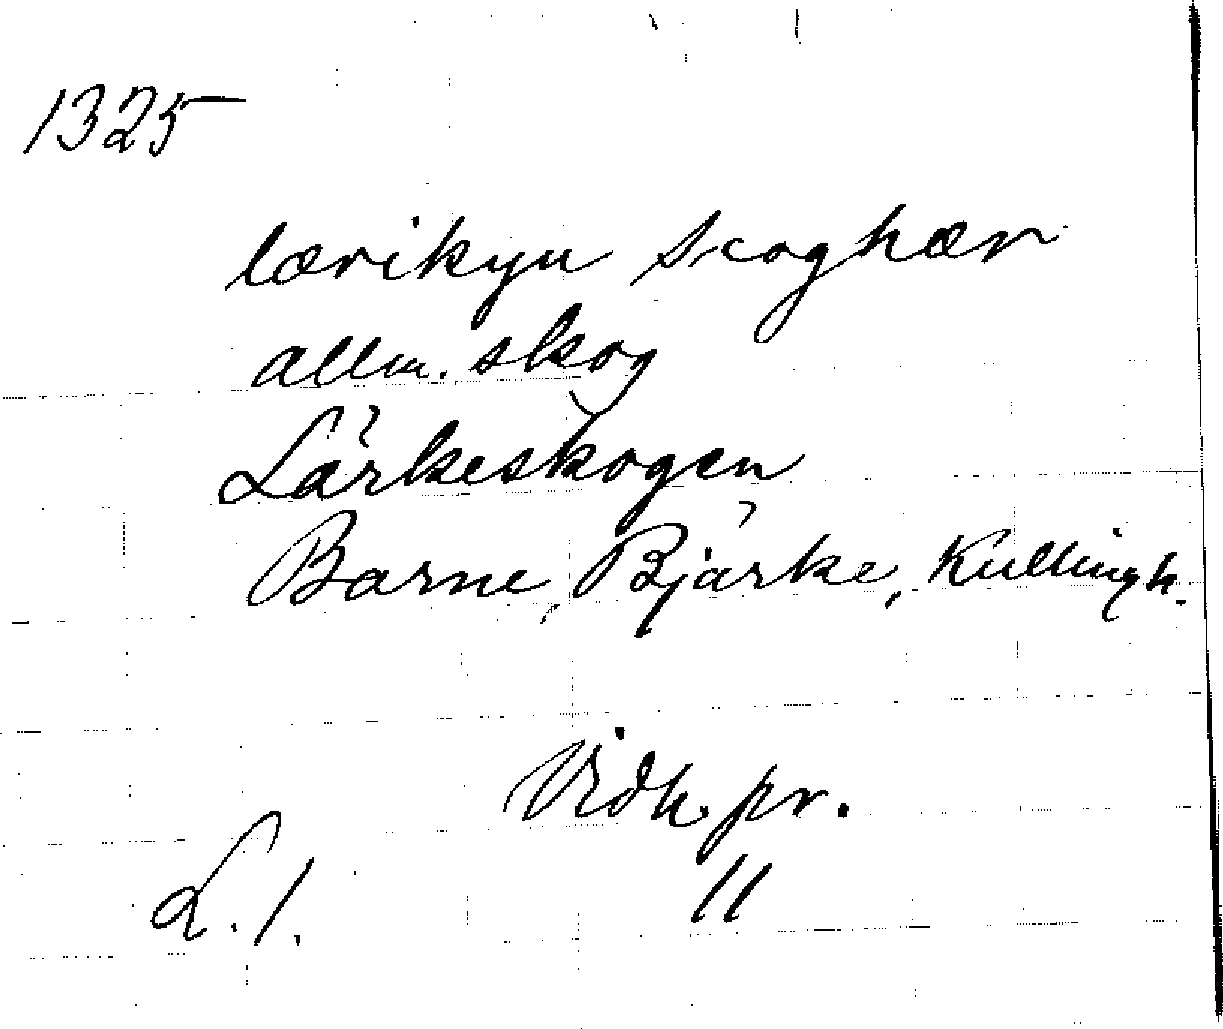 1325
lærikyu scoghær
allm. skog
Lärkeskogen
Barne, Bjärke, Kullingsh.
Vidh. pr.
L. 1. 11